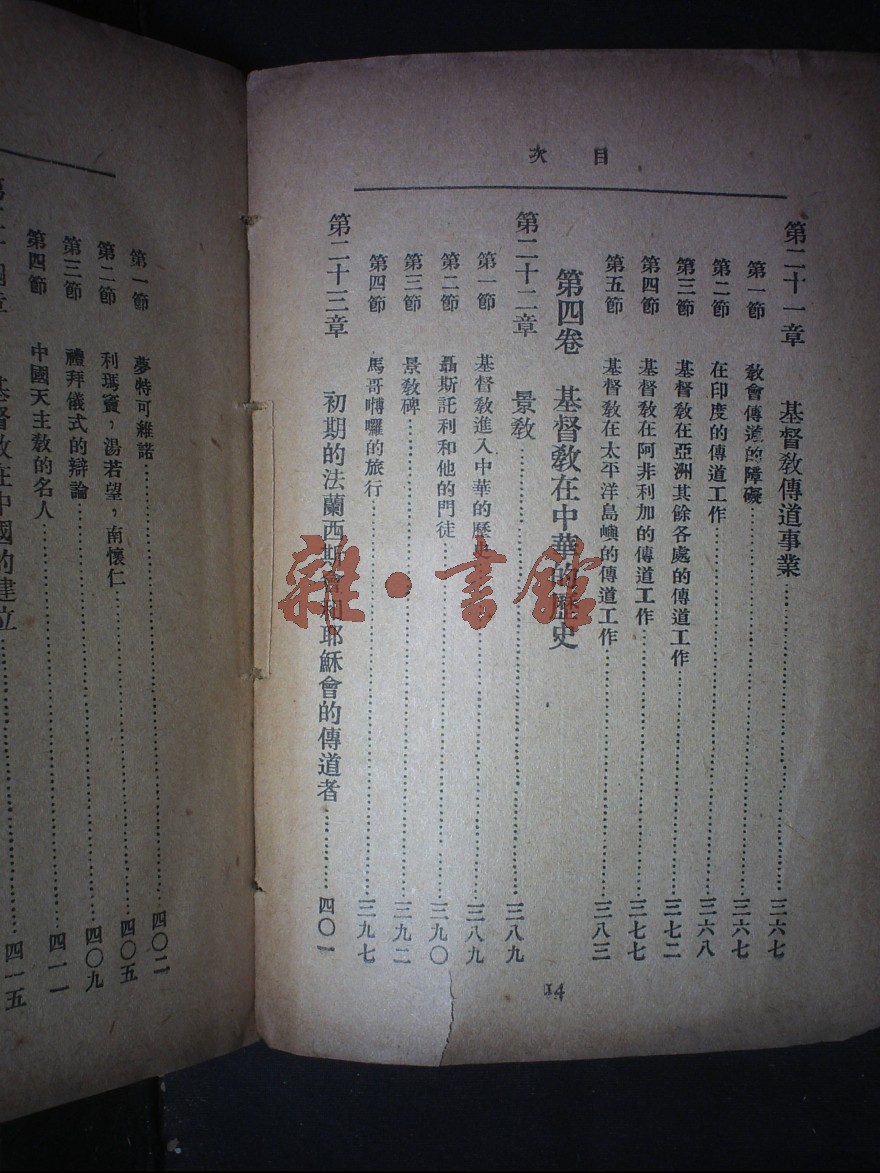 目次
第二十一章 基督教傳道事業…………三六七
第一節 教會傳道的障礙…………三六七
第二節 在印度的傳道工作…………三六八
第三節 基督教在亞洲其餘各處的傳道工作…………三七二
第四節 基督教在阿非利加的傳道工作…………三七七
第五節 基督教在太平洋島嶼的傳道工作…………三八三
第四卷 基督教在中華的歷史
第二十二章 景教…………三八九
第一節 基督教進入中華的歷史…………三八九
第二節 聶斯託利和他的門徒…………三九〇
第三節 景教碑…………三九二
第四節 馬哥嚩囉的旅行…………三九七
第二十三章 初期的法蘭西斯會和耶穌會的傳道者…………四〇一
第一節 夢特可維諾…………四〇二
第二節 利瑪竇，湯若望，南懷仁…………四〇五
第三節 禮拜儀式的辯論…………四〇九
第四節 中國天主教的名人…………四一一
第二十四章 基督教在中國的建立…………四一五
雜·書館